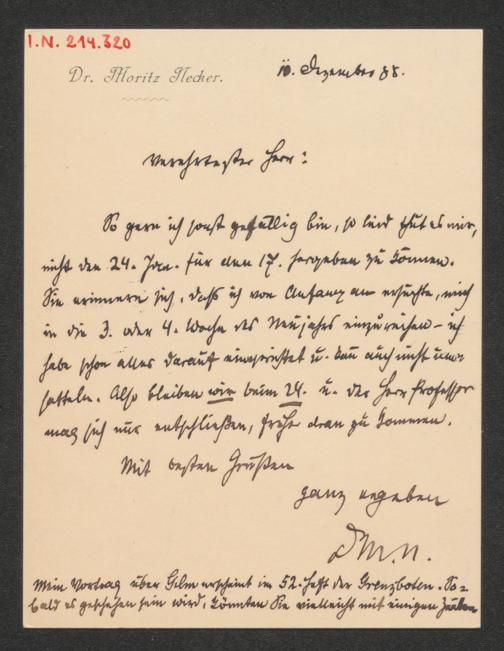 I.N. 214.320
Dr. Moritz Necker.
10. Dezember 88.
Verehrtester Herr:
So gern ich sonst gefällig bin, so leid thut es mir,
nicht den 24. Jan. für den 17. hergeben zu können.
Sie erinnern sich, daß ich von Anfang an ersuchte, mich
in die 3. oder 4. Woche des Neujahrs einzureihen – ich
habe schon alles darauf eingerichtet u. kann auch nicht um=
satteln. Also bleiben wir beim 24. u. der Herr Professor
mag sich nur entschließen, früher dran zu kommen.
Mit besten Grüßen
ganz ergeben
DM.N.
Mein Vortrag über Gilm erscheint im 52. Heft der Grenzboten. So=
bald es geschehen sein wird, könnten Sie vielleicht mit einigen Zeilen